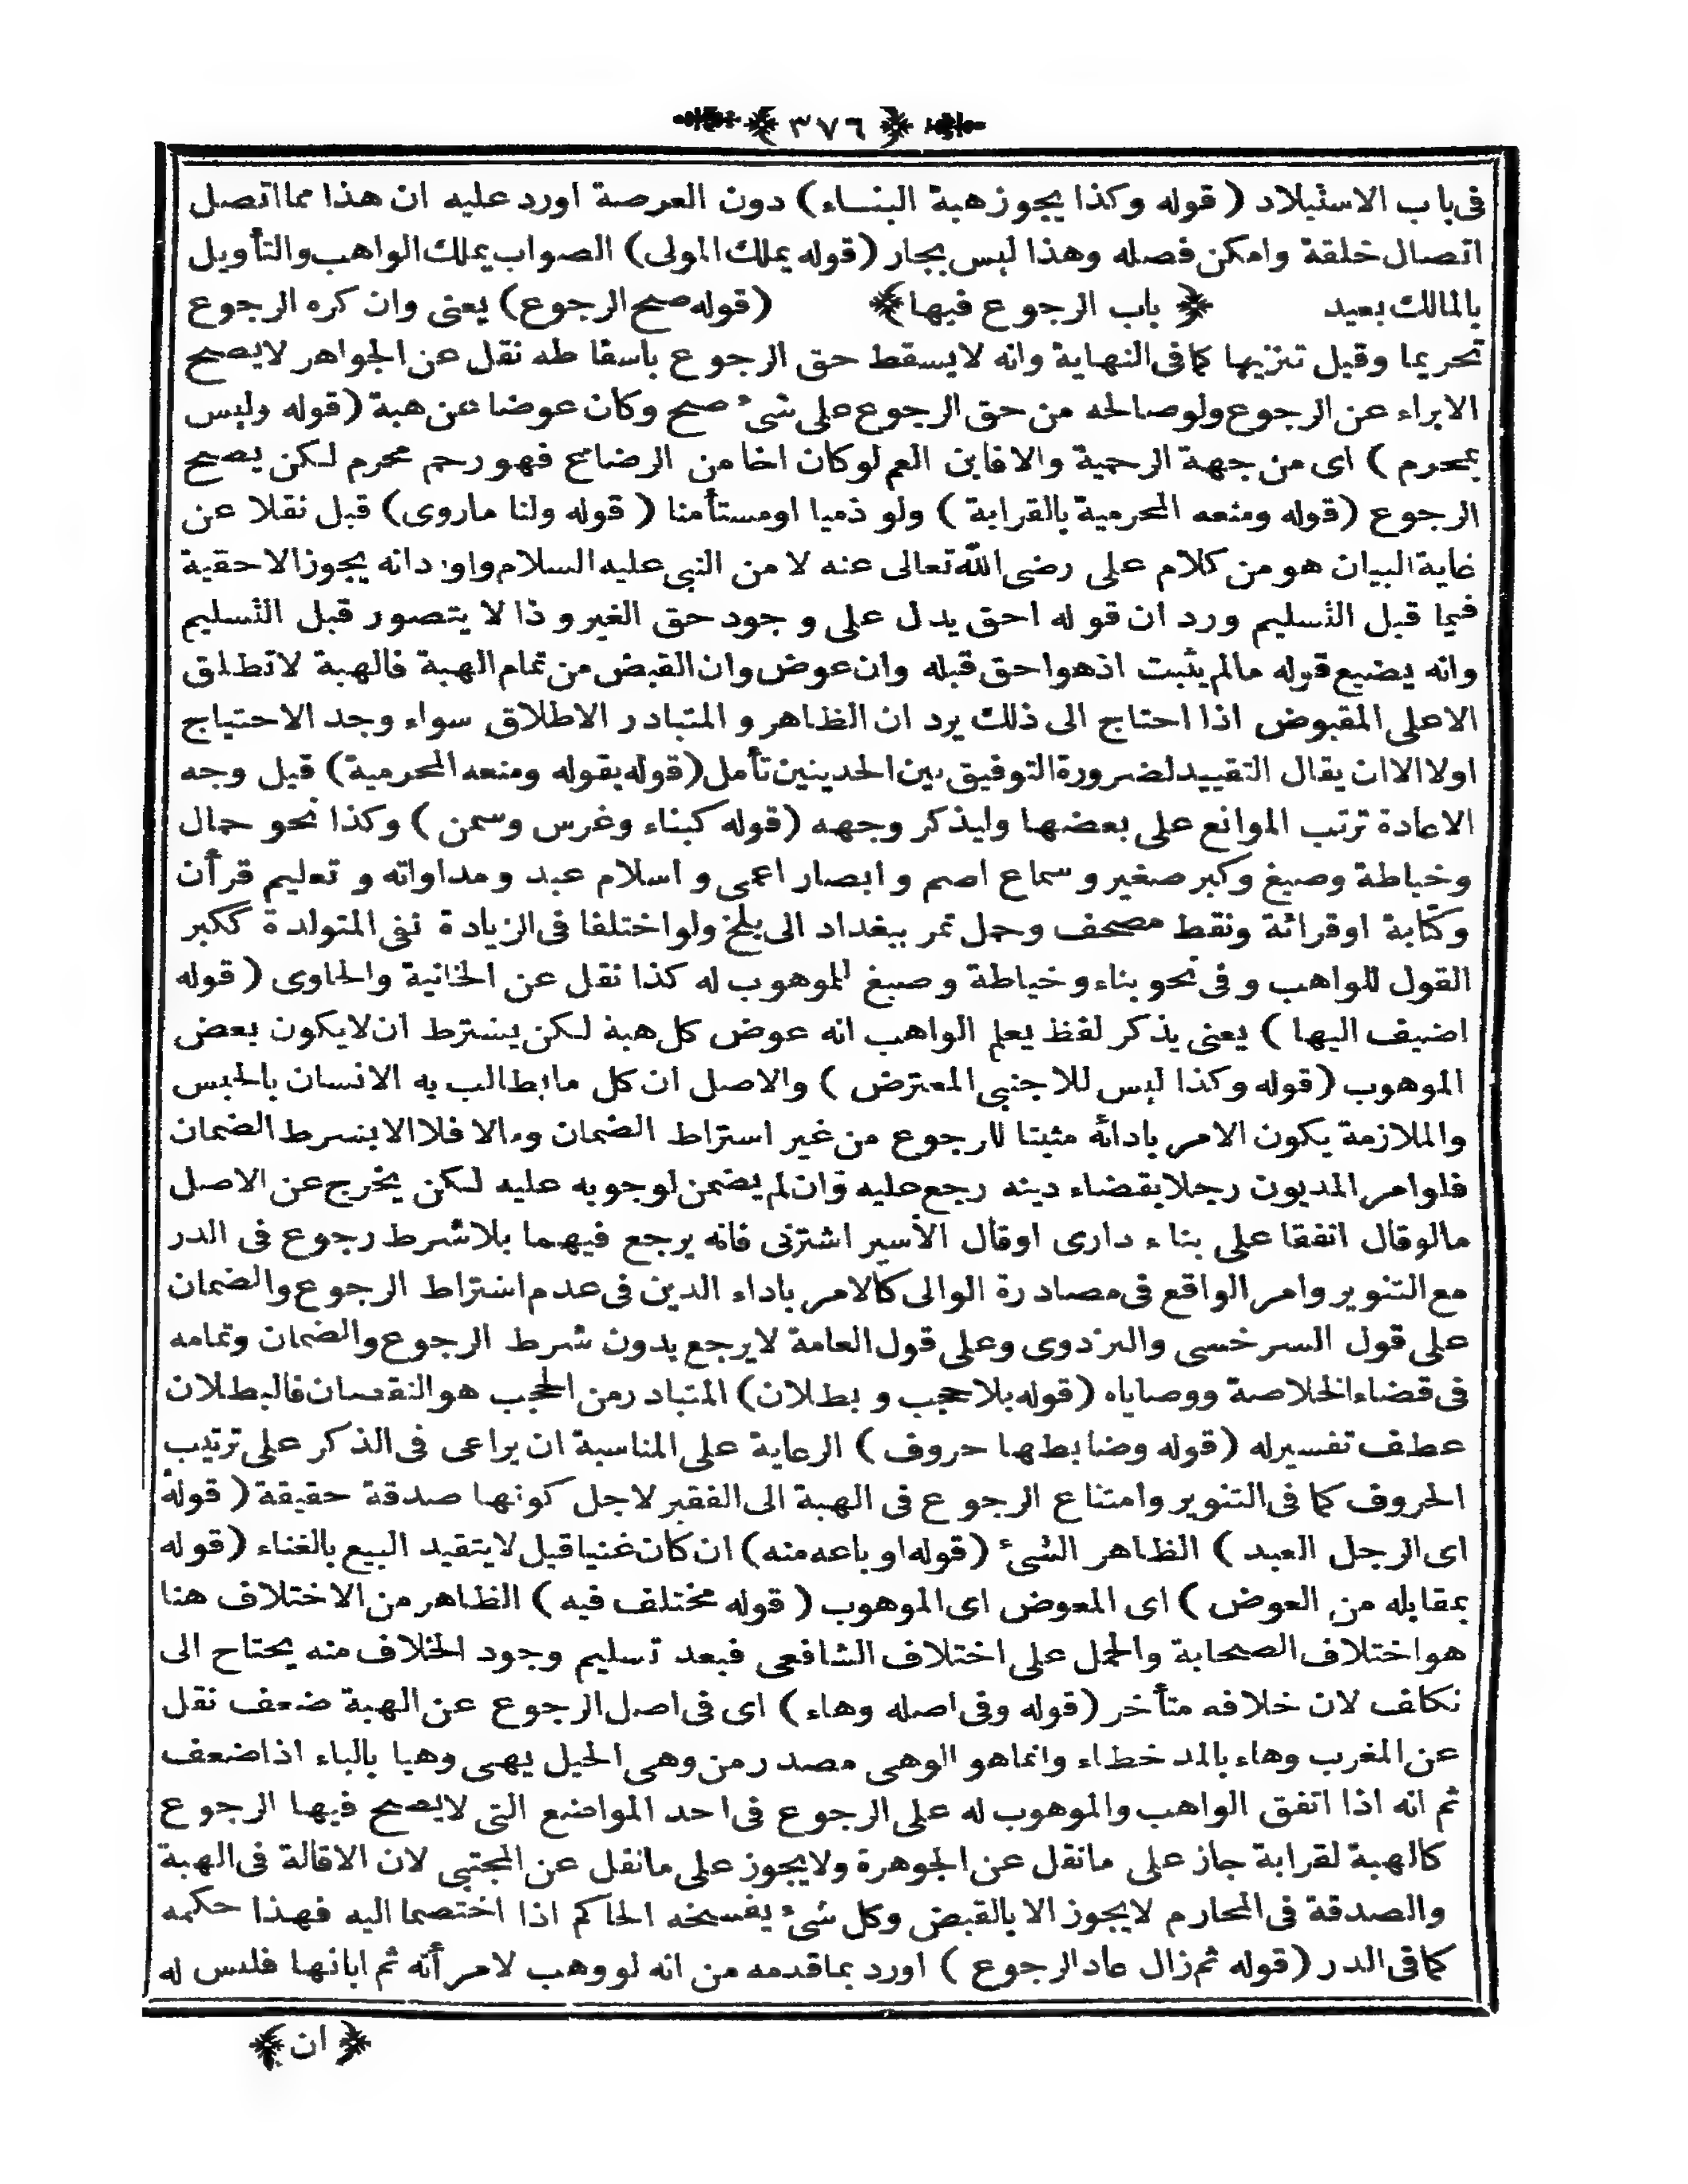 ٣٧٦
فى باب الاستيلاد (قوله وكذا يجوز هبة البناء) دون العرصة اورد عليه ان هذا مما اتصل
اتصال خلقة وامكن فصله وهذا ليس بجار (قوله يملك المولى) الصواب يملك الواهب والتأويل
بالمالك بعيد ﴿ باب الرجوع فيها ﴾ (قوله صح الرجوع) يعنى وان كره الرجوع
تحريما وقيل تنزيها كما فى النهاية وانه لا يسقط حق الرجوع باسقاطه نقل عن الجواهر لايصح
الابراء عن الرجوع ولو صالحه من حق الرجوع على شىء صح وكان عوضا عن هبة (قوله وليس
بمحرم) اى من جهة الرحمية والا فابن العم لو كان اخا من الرضاع فهو رحم محرم لكن يصح
الرجوع (قوله ومنعه المحرمية بالقرابة) ولو ذميا او مستأمنا (قوله ولنا ماروى) قيل نقلا عن
غاية البيان هو من كلام على رضى الله تعالى عنه لا من النبى عليه السلام واورد انه يجوز الاحقية
فيما قبل التسليم ورد ان قوله احق يدل على وجود حق الغير وذا لا يتصور قبل التسليم
وانه يضيع قوله مالم يثبت اذ هو احق قبله وان عوض وان القبض من تمام الهبة فالهبة لاتطلق
الا على المقبوض اذا احتاج الى ذلك يرد ان الظاهر والمتبادر الاطلاق سواء وجد الاحتياج
اولا الا ان يقال التقييد لضرورة التوفيق بين الحديثين تأمل (قوله بقوله ومنعه المحرمية) قيل وجه
الاعادة ترتب الموانع على بعضها وليذكر وجهه (قوله كبناء وغرس وسمن) وكذا نحو جمال
وخياطة وصبغ وكبر صغير وسماع اصم وابصار اعمى واسلام عبد ومداواته وتعليم قرأن
وكتابة او قرائة ونقط مصحف وحمل تمر ببغداد الى بلخ ولو اختلفا فى الزيادة ففى المتولدة ككبر
القول للواهب وفى نحو بناء وخياطة وصبغ للموهوب له كذا نقل عن الخانية والحاوى (قوله
اضيف اليها) يعنى يذكر لفظ يعلم الواهب انه عوض كل هبة لكن يشترط ان لايكون بعض
الموهوب (قوله وكذا ليس للاجنبى المعترض) والاصل ان كل مايطالب به الانسان بالحبس
والملازمة يكون الامر بادائه مثبتا للرجوع من غير اشتراط الضمان ومالا فلا الا بشرط الضمان
فلو امر المديون رجلا بقضاء دينه رجع عليه وان لم يضمن لوجوبه عليه لكن يخرج عن الاصل
مالو قال انفقا على بناء دارى او قال الأسير اشترنى فانه يرجع فيهما بلا شرط رجوع فى الدر
مع التنوير وامر الواقع فى مصادرة الوالى كالامر باداء الدين فى عدم اشتراط الرجوع والضمان
على قول السرخسى والبزدوى وعلى قول العامة لا يرجع بدون شرط الرجوع والضمان وتمامه
فى قضاء الخلاصة ووصاياه (قوله بلا حجب وبطلان) المتبادر من الحجب هو النقصان فالبطلان
عطف تفسير له (قوله وضابطها حروف) الرعاية على المناسبة ان يراعى فى الذكر على ترتيب
الحروف كما فى التنوير وامتناع الرجوع فى الهبة الى الفقير لاجل كونها صدقة حقيقة (قوله
اى الرجل العبد) الظاهر الشىء (قوله او باعه منه) ان كان غنيا قيل لا يتقيد البيع بالغناء (قوله
بمقابله من العوض) اى المعوض اى الموهوب (قوله مختلف فيه) الظاهر من الاختلاف هنا
هو اختلاف الصحابة والحمل على اختلاف الشافعى فبعد تسليم وجود الخلاف منه يحتاج الى
تكلف لان خلافه متأخر (قوله وفى اصله وهاء) اى فى اصل الرجوع عن الهبة ضعف نقل
عن المغرب وهاء بالمد خطاء وانما هو الوهى مصدر من وهى الحبل يهى وهيا بالياء اذا ضعف
ثم انه اذا اتفق الواهب والموهوب له على الرجوع فى احد المواضع التى لايصح فيها الرجوع
كالهبة لقرابة جاز على مانقل عن الجوهرة ولايجوز على مانقل عن المجتبى لان الاقالة فى الهبة
والصدقة فى المحارم لايجوز الا بالقبض وكل شىء يفسخه الحاكم اذا اختصما اليه فهذا حكمه
كما فى الدر (قوله ثم زال عاد الرجوع) اورد بما قدمه من انه لو وهب لامرأته ثم ابانها فليس له
﴿ ان ﴾